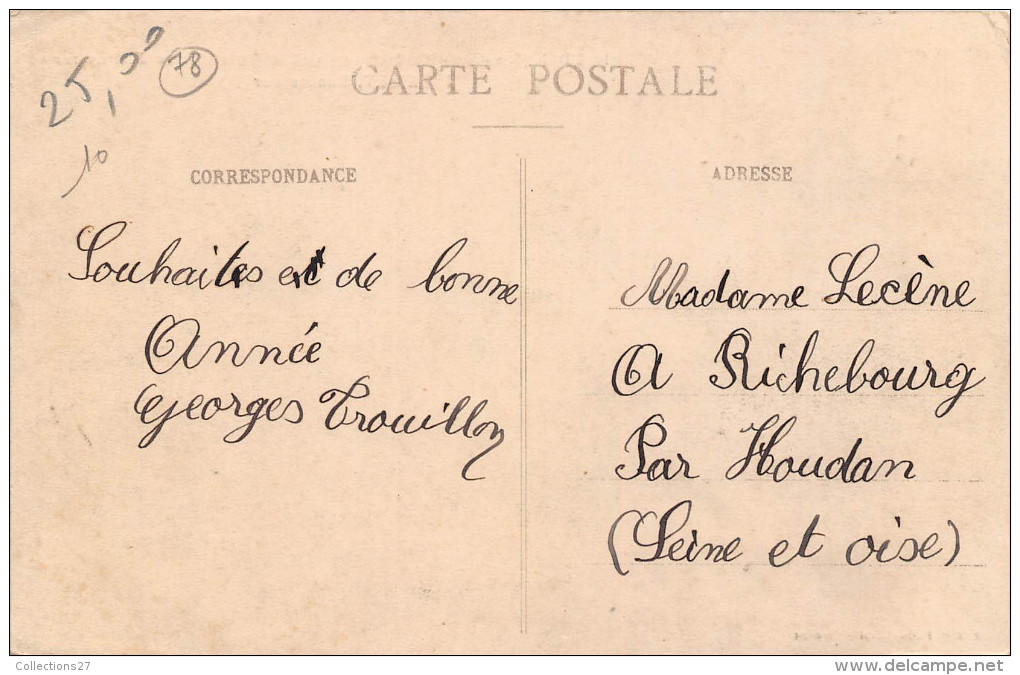 25,00
78
10
CARTE POSTALE
CORRESPONDANCE
Souhaites et de bonne
Année
Georges Trouillon
ADRESSE
Madame Lecène
A Richebourg
Par Houdan
(Seine et oise)
Collections27
www.delcampe.net